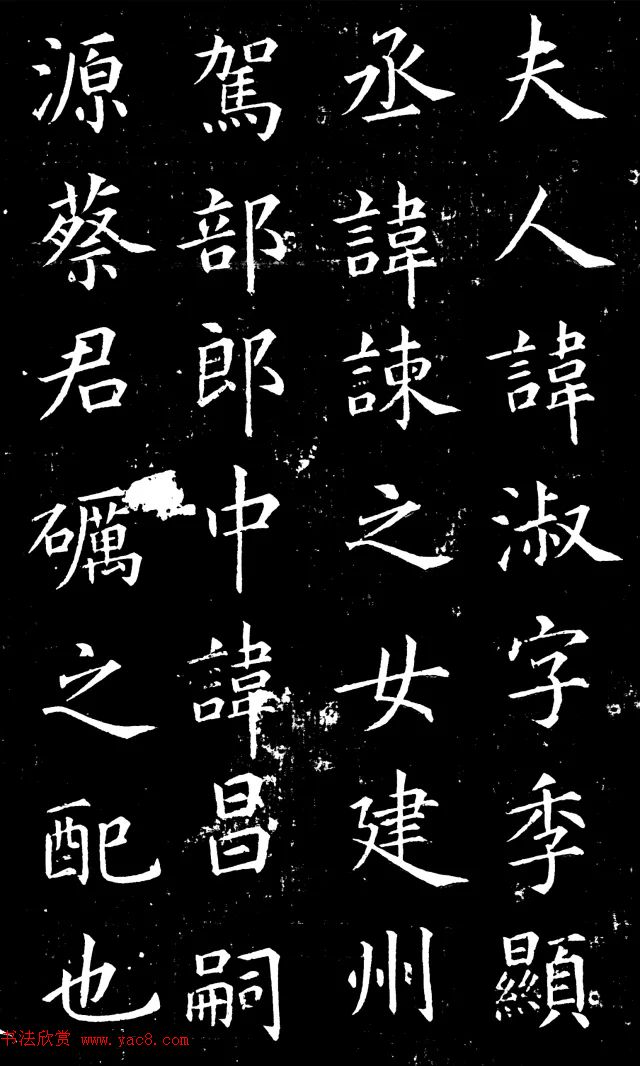 夫人諱淑字季顯
丞諱諫之女建州
駕部郎中諱昌嗣
源蔡君礪之配也
书法欣赏 www.yac8.com